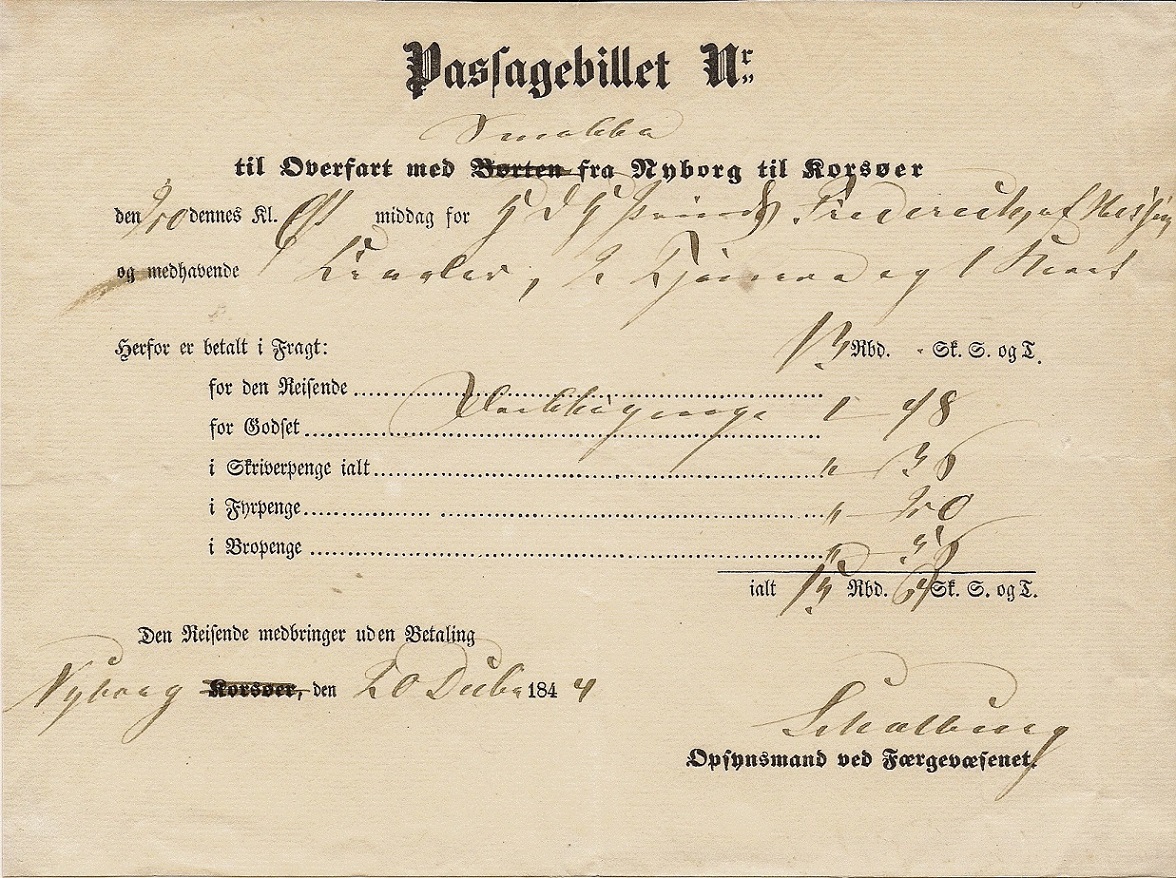 Passagebillet Nr. „
Smakke
til Overfart med Børten fra Nyborg til Korsøer
den 20 dennes Kl. middag for Prinds Frederich af Hessen
og medhavende 1 2 Tjenere og 1
Herfor er betalt i Fragt: 13 Rbd. Sk. S. og T.
for den Reisende
for Godset 1 — 48
i Skriverpenge ialt „ — 36
i Fyrpenge „ — 20
i Bropenge „ —
ialt 15 Rbd. 64 Sk. S. og T.
Den Reisende medbringer uden Betaling
Nyborg Korsøer, den 20 Decbr 1844
Schalburg
Opsynsmand ved Færgevæsenet.